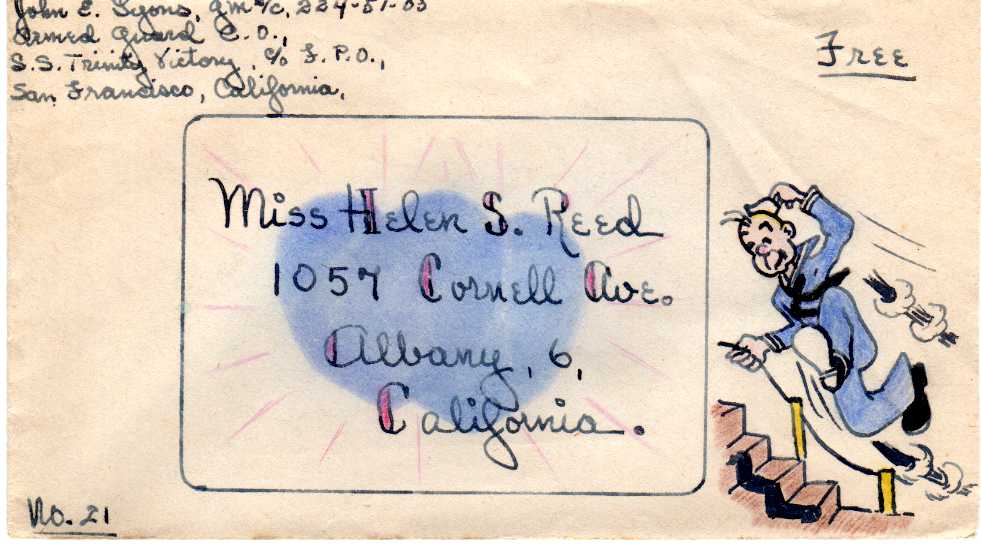 John E. Lyons, GM 3/c, 224-51-03
Armed Guard C.O.,
S.S. Trinity Victory, c/o F.P.O.,
San Francisco, California,
Free
Miss Helen S. Reed
1057 Cornell Ave.
Albany, 6,
California.
No. 21